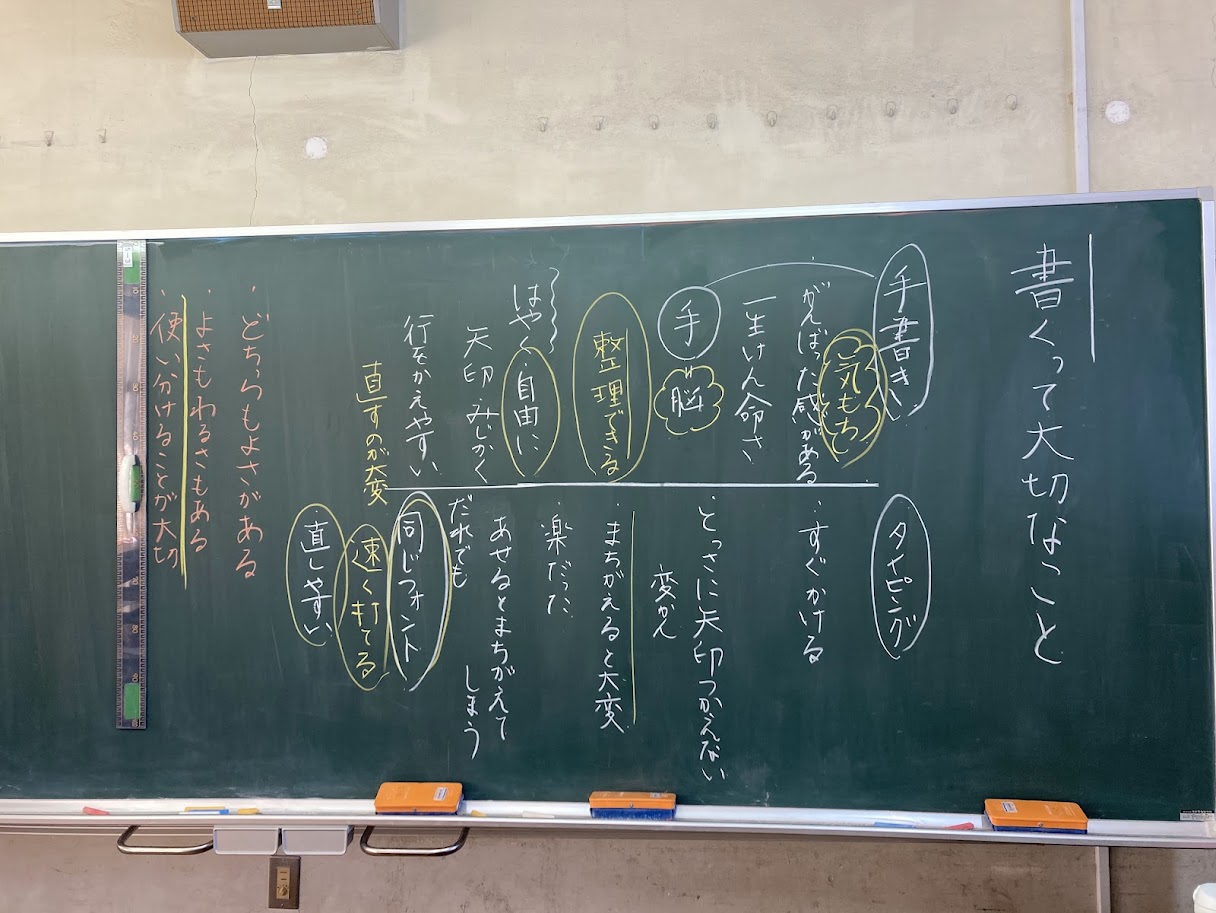 書くって大切なこと
手書き
気もち
・がんばった感がある
一生けん命さ
手
脳
整理できる
はやく・自由に
矢印・みじかく
行をかえやすい
直すのが大変
タイピング
・すぐかける
・とっさに矢印つかえない
変かん
・まちがえると大変
・楽だった
あせるとまちがえて
しまう
だれでも
同じフォント
速く打てる
直しやすい
・どちらもよさがある
・よさもわるさもある
・使い分けることが大切